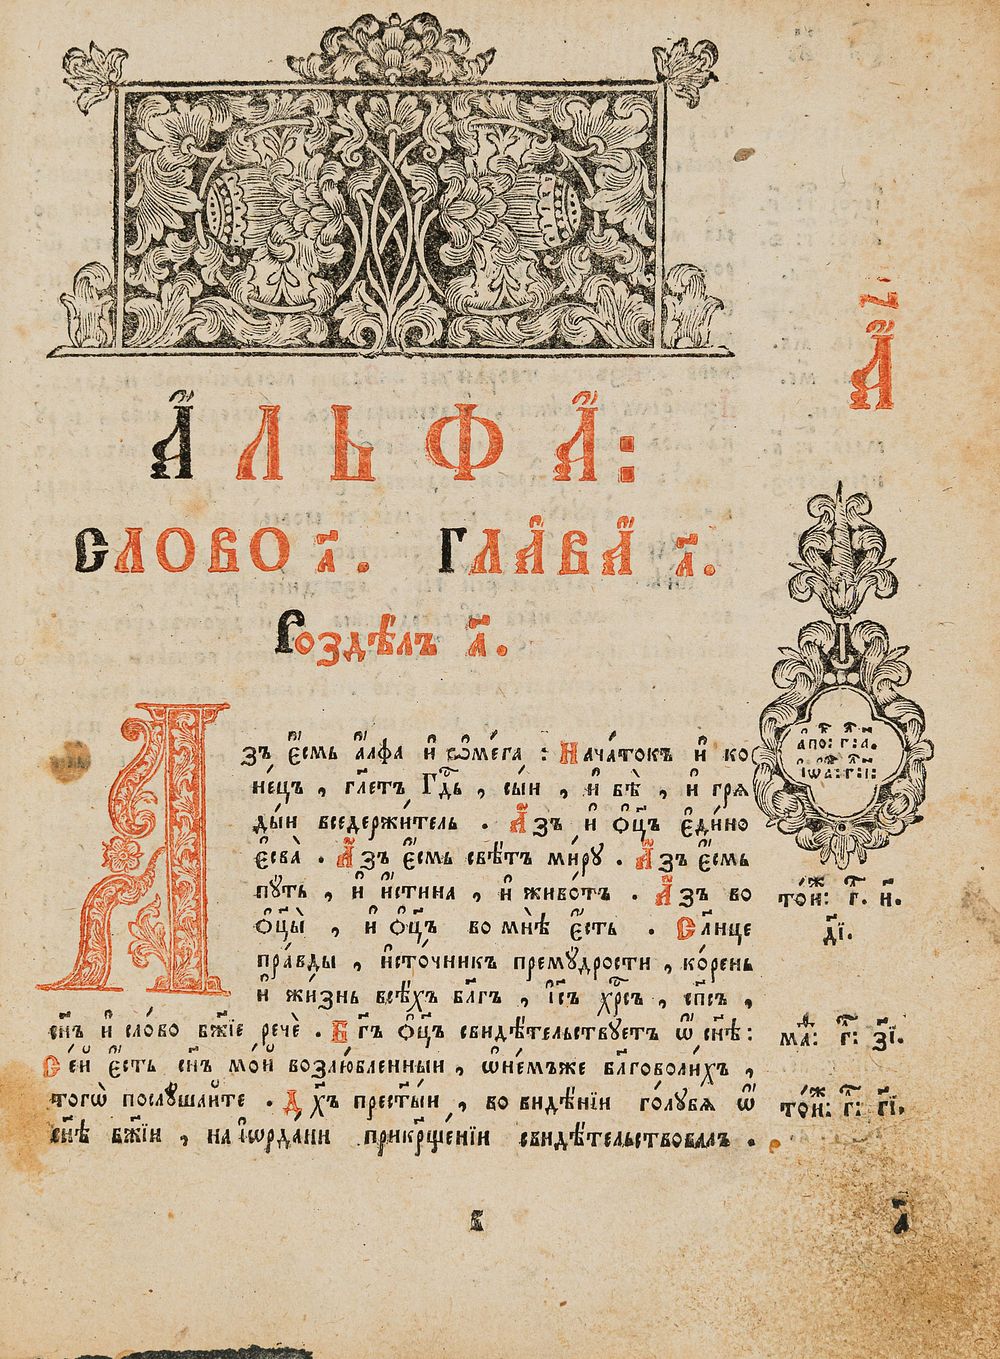 А҃
А҆́ЛЬФА҆́:
СЛОВО а҃. ГЛА҆ВА҆̀ а҃.
Роздѣ́лъ а҃.
Азъ є҆́смь а҆́лфа и҆ ѡ҆ме́га : Нача́токъ и҆ ко
не́цъ , гл҃етъ Гд҇ь , сы́и , и҆ бѣ̀ , и҆ гря
ды́и вседержи́тель . А҆́зъ и҆ ѻ҆ц҃ъ є҆ди́но
є҆сва̀ . А҆́зъ є҆́смь свѣ́тъ ми́рꙋ . А҆́зъ є҆́смь
пꙋ́ть , и҆ и҆́стина , и҆ живо́тъ . А҆́зъ во
ѻ҆ц҃ы̀ , и҆ ѻ҆ц҃ъ во мнѣ̀ є҆́сть . Сл҃нце
пра́вды , и҆сто́чникъ премꙋ́дрости , ко́рень
и҆ жи́знь всѣ́хъ бл҃гъ , і҆с҃ъ хр҇съ , сп҃съ ,
сн҃ъ и҆ сло́во бж҃іе речѐ . Бг҃ъ ѻ҆ц҃ъ свидѣ́тельствꙋетъ ѿ сн҃ѣ :
Се́й є҆́сть сн҃ъ мо́й возлю́бленныи , ѡ҆не́мъже бл҃говоли́хъ ,
тогѡ̀ послꙋ́шайте . Дх҃ъ прест҃ы́и , во видѣ́нїи го́лꙋбя ѿ
сн҃ѣ бж҃їи , на і҆ѡрда́ни прикр҃ще́нїи свидѣ́тельствовалъ .
а҆по: г҃: а.
і҆ѡа: г҃: і:
то́иж: г҃. и҃.
д҃і.
маⷴ: г҃: з҃і.
то́иж: г҃: г҃і.
в
а҃